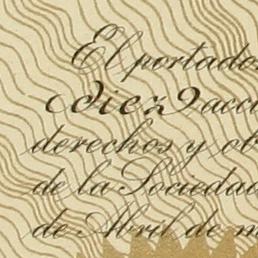 El portador
diez acci
derechos y ob
de la Sociedad
de Abril de m